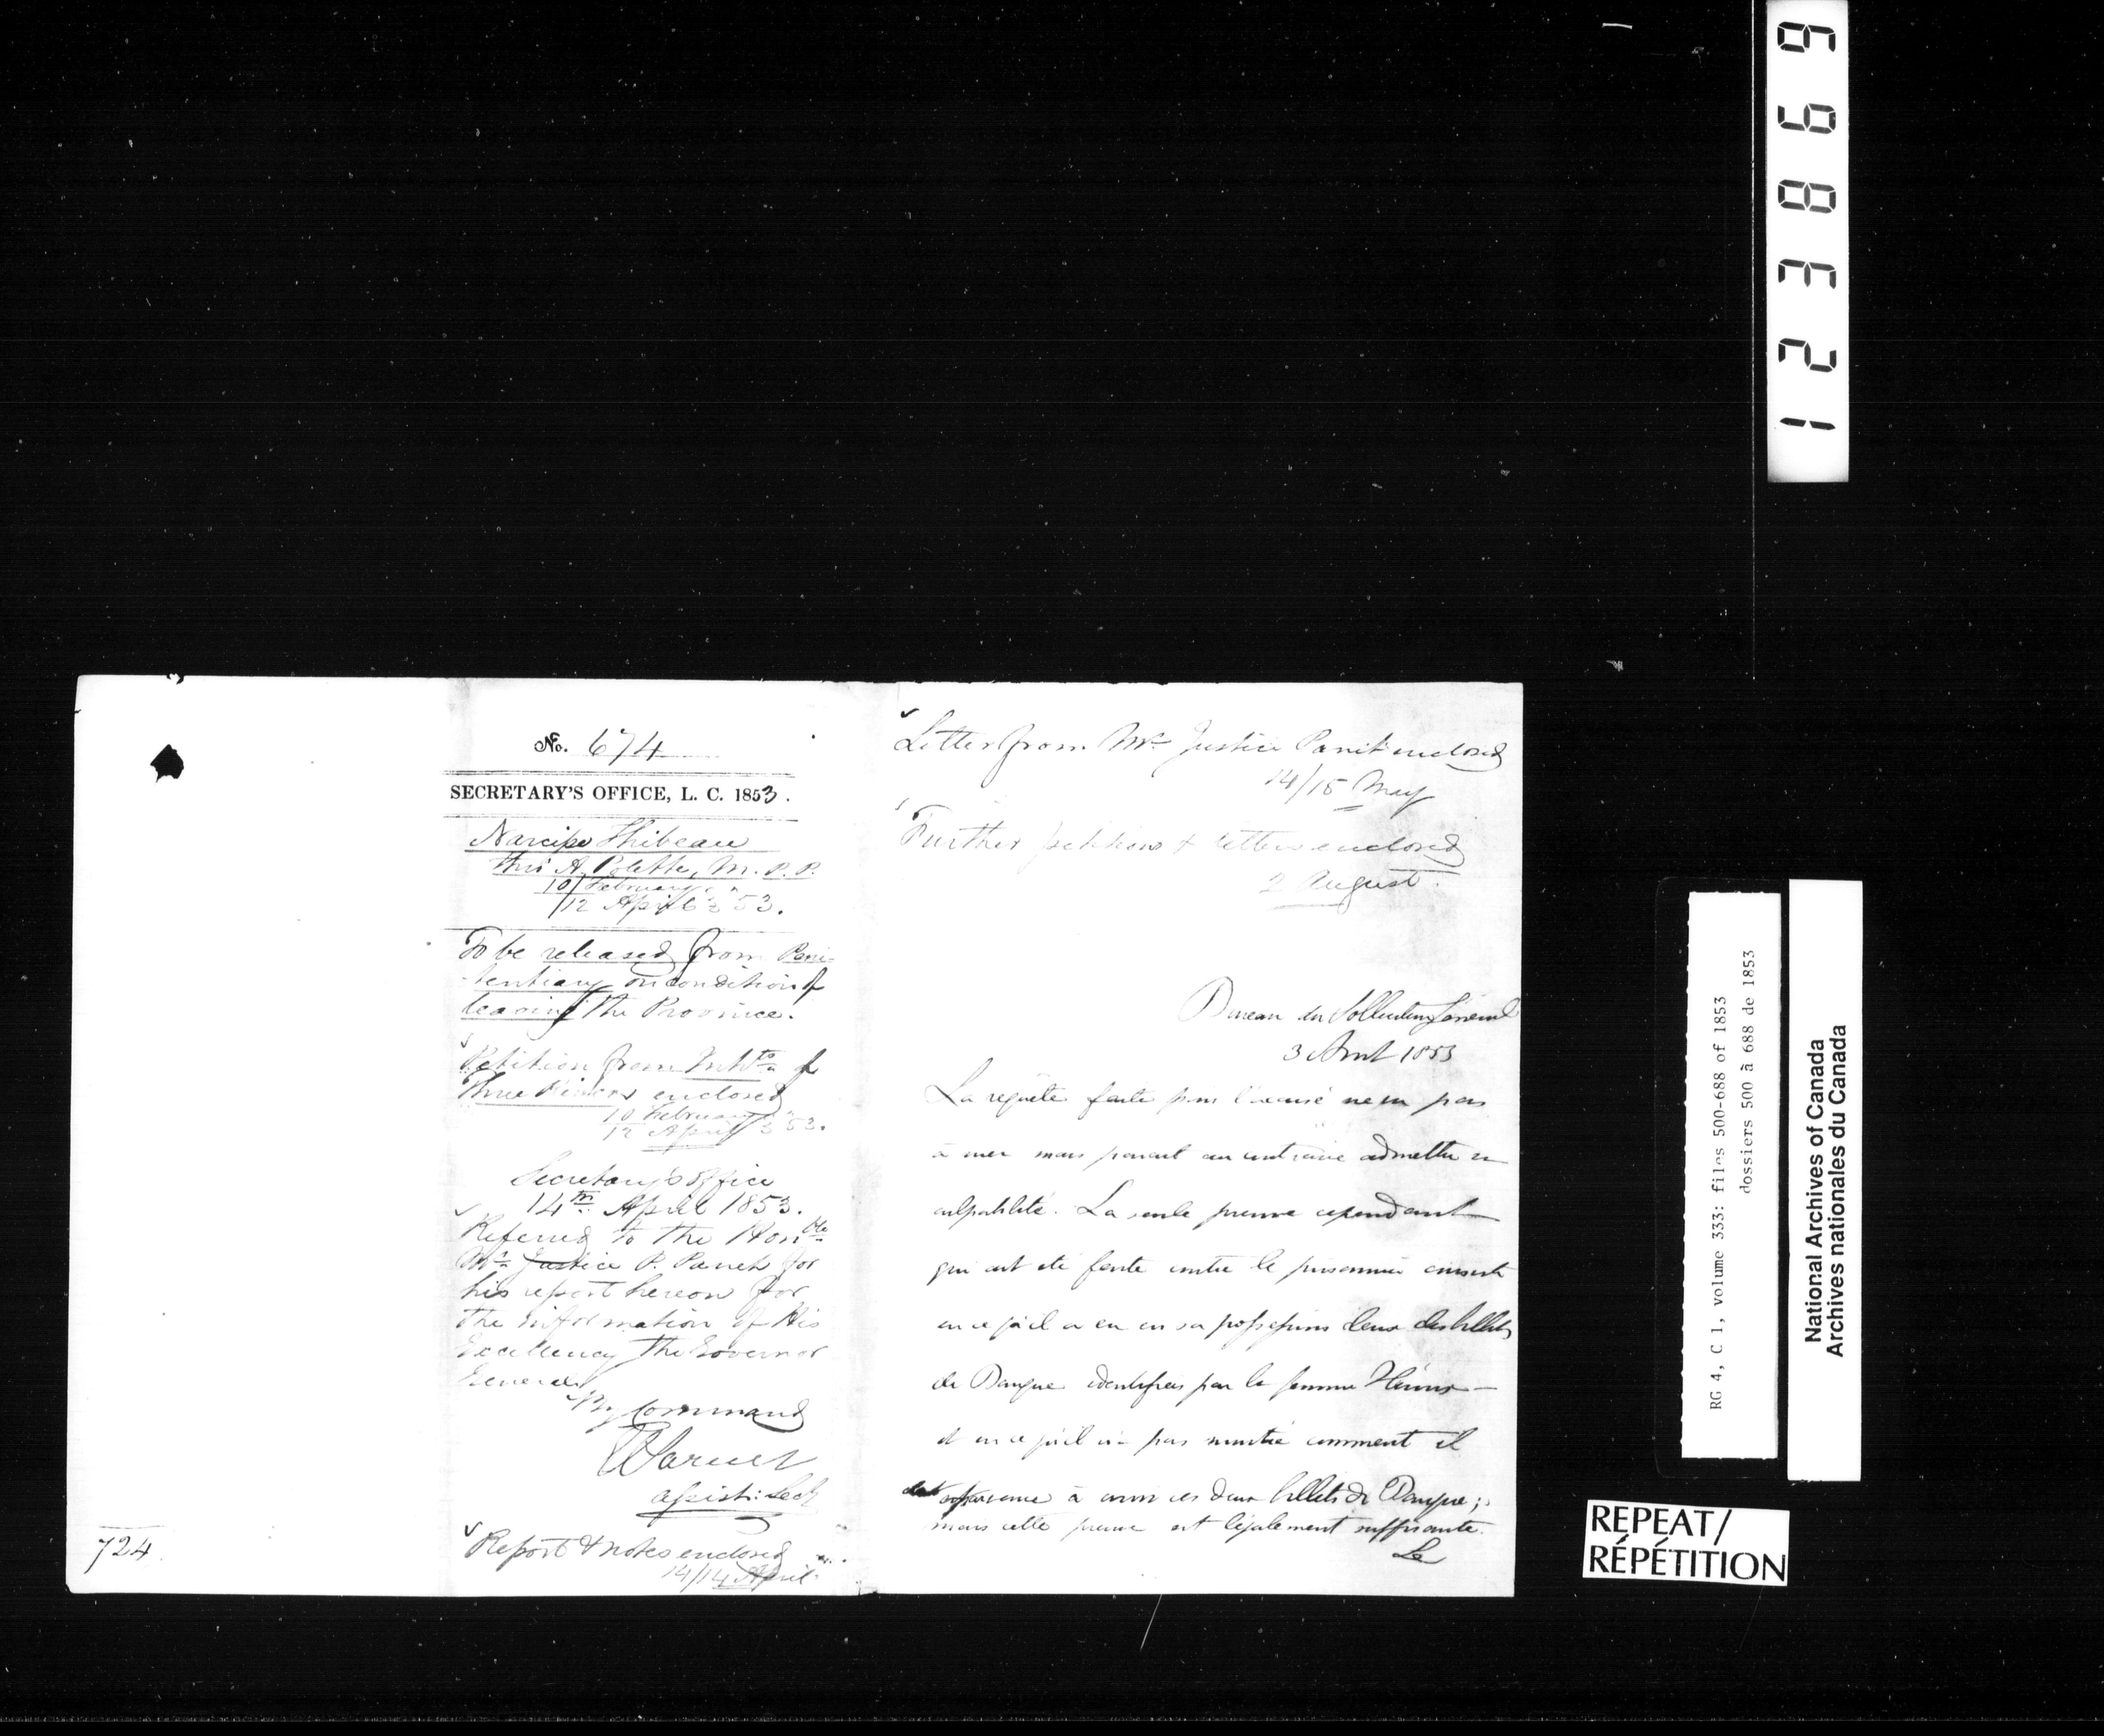 No. 674
SECRETARY'S OFFICE, L. C. 1853.
Narcisse Thibeau
thro' A. Polette, M. P. P.
10/ February
/12 April 53.
To be released from Peni-
tentiary on condition of
leaving the Province.
Petition from Inhts. of
Three Rivers enclosed
10 February
12 April 53.
Secretary's Office
14th April 1853.
Referred to the Honble
Mr. Justice P. Panet for
his report hereon for
the information of His
Excellency the Governor
General
By Command
Assist: Secy
Report & notes enclosed
14/14 April
724
Letter from Mr Justice Panet enclosed
14/15 May
Further petitions & letter enclosed
2 August.
Bureau du Solliciteur Général
3 Août 1853
La requête faite par l'accusé ne va pas
à nier mais parait au contraire admettre sa
culpabilité. La seule preuve cependant
qui ait été faite contre le prisonnier consiste
en ce qu'il a eu en sa possession deux des billets
de Banque identifiés par la femme
et en ce qu'il n'a pas montré comment il
à avoir ces deux billets de Banque;
mais cette preuve est légalement suffisante.
Le
123869
RG 4, C 1, volume 333: files 500-688 of 1853
dossiers 500 à 688 de 1853
National Archives of Canada
Archives nationales du Canada
REPEAT/
RÉPÉTITION